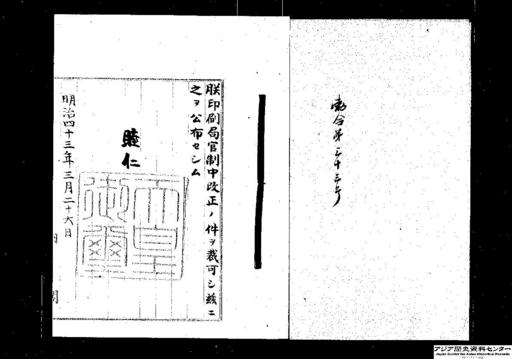 勅令第三十三号
朕印刷局官制中改正ノ件ヲ裁可シ茲ニ
之ヲ公布セシム
睦仁
天皇
御璽
明治四十三年三月二十六日
内閣
アジア歴史資料センター
Japan Center for Asian Historical Records